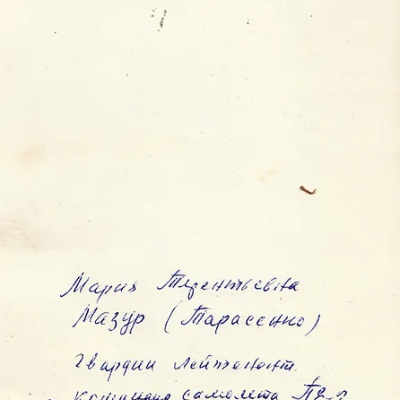 Мария Терентьевна
Мазур (Тарасенко)
гвардии лейтенант.
самолета